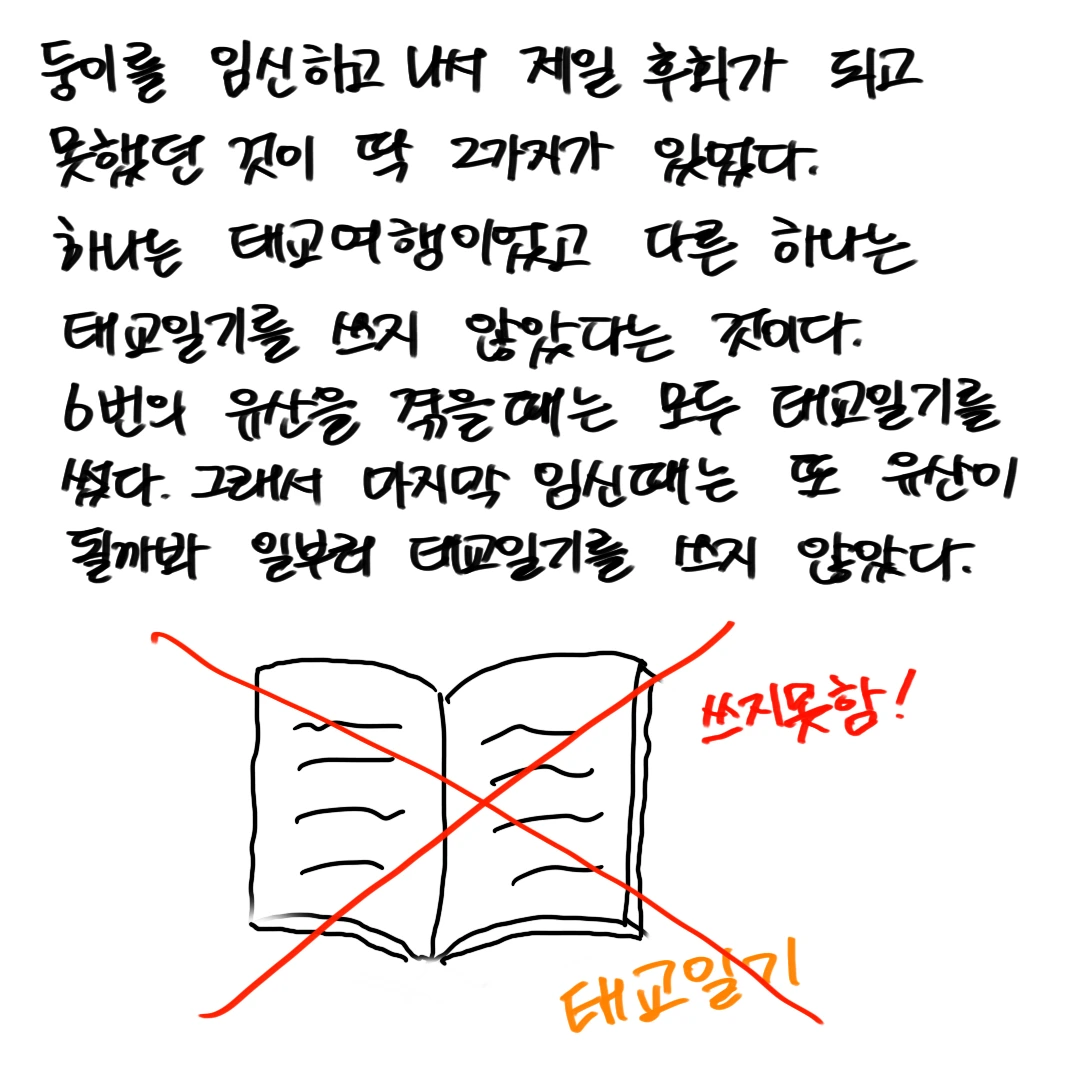 둥이를 임신하고 나서 제일 후회가 되고
못했던 것이 딱 2가지가 있었다.
하나는 태교여행이었고 다른 하나는
태교일기를 쓰지 않았다는 것이다.
6번의 유산을 겪을때는 모두 태교일기를
썼다. 그래서 마지막 임신때는 또 유산이
될까봐 일부러 태교일기를 쓰지 않았다.
쓰지못함!
태교일기